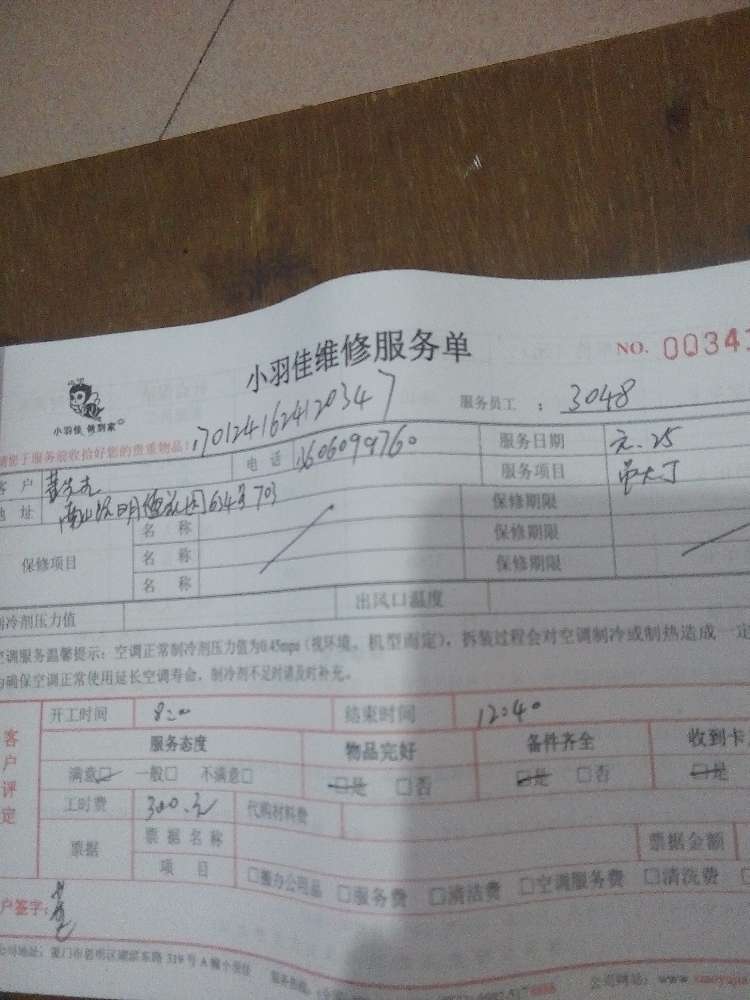 小羽佳维修服务单
NO. 0034
小羽佳 做到家
服务员工 : 3048
请您于服务前收拾好您的贵重物品! 1701241624120347
客 户
电 话 13606099760
服务日期 元.25
地 址 明 花园634号703
服务项目
保修项目
名 称
保修期限
名 称
保修期限
名 称
保修期限
制冷剂压力值
出风口温度
空调服务温馨提示: 空调正常制冷剂压力值为0.45mpa (视环境、机型而定), 拆装过程会对空调制冷或制热造成一定
为确保空调正常使用延长空调寿命, 制冷剂不足时请及时补充。
客户评定
开工时间 8:00
结束时间 12:40
服务态度
物品完好
备件齐全
收到卡
满意□ 一般□ 不满意□
□是 □否
□是 □否
□是
工时费 300.元
代购材料费
票据
票据名称
票据金额
项 目
□搬办公用品 □服务费 □清洁费 □空调服务费 □清洗费
客户签字:
公司地址: 厦门市思明区湖滨东路319号A幢
服务热线:
公司网站: www